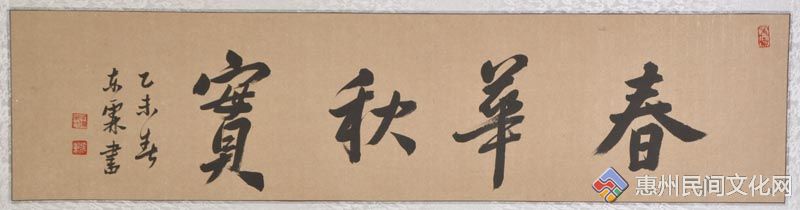 春華秋實
乙未春
东霖書
惠州民间文化网